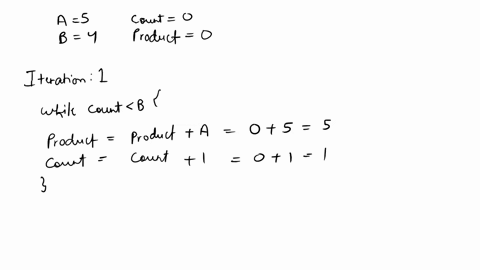 A = 5 Count = 0
B = 4 Product = 0
Iteration: 1
while count < B {
Product = Product + A = 0 + 5 = 5
Count = Count + 1 = 0 + 1 = 1
}